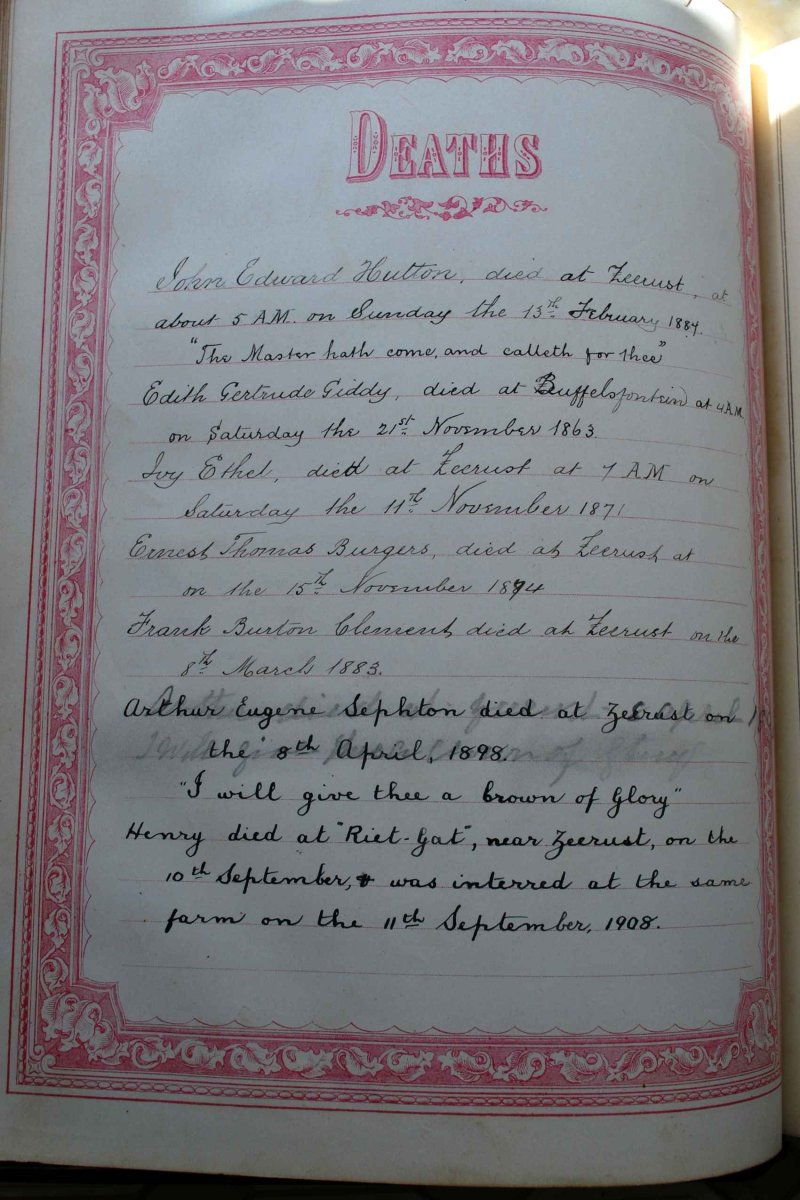 DEATHS
John Edward Hutton, died at Zeerust, at
about 5 A.M. on Sunday the 13th February 1884.
"The Master hath come, and calleth for thee"
Edith Gertrude Giddy, died at Buffelsfontein at 4 A.M.
on Saturday the 21st November 1863.
Ivy Ethel, died at Zeerust at 7 A.M on
Saturday the 11th November 1871
Ernest Thomas Burgers, died at Zeerust at
on the 15th November 1874
Frank Burton Clement died at Zeerust on the
8th March 1883.
Arthur Eugene Sephton died at Zeerust on
the 8th April, 1898.
"I will give thee a Crown of Glory"
Henry died at "Riet-Gat", near Zeerust, on the
10th September, & was interred at the same
farm on the 11th September, 1908.